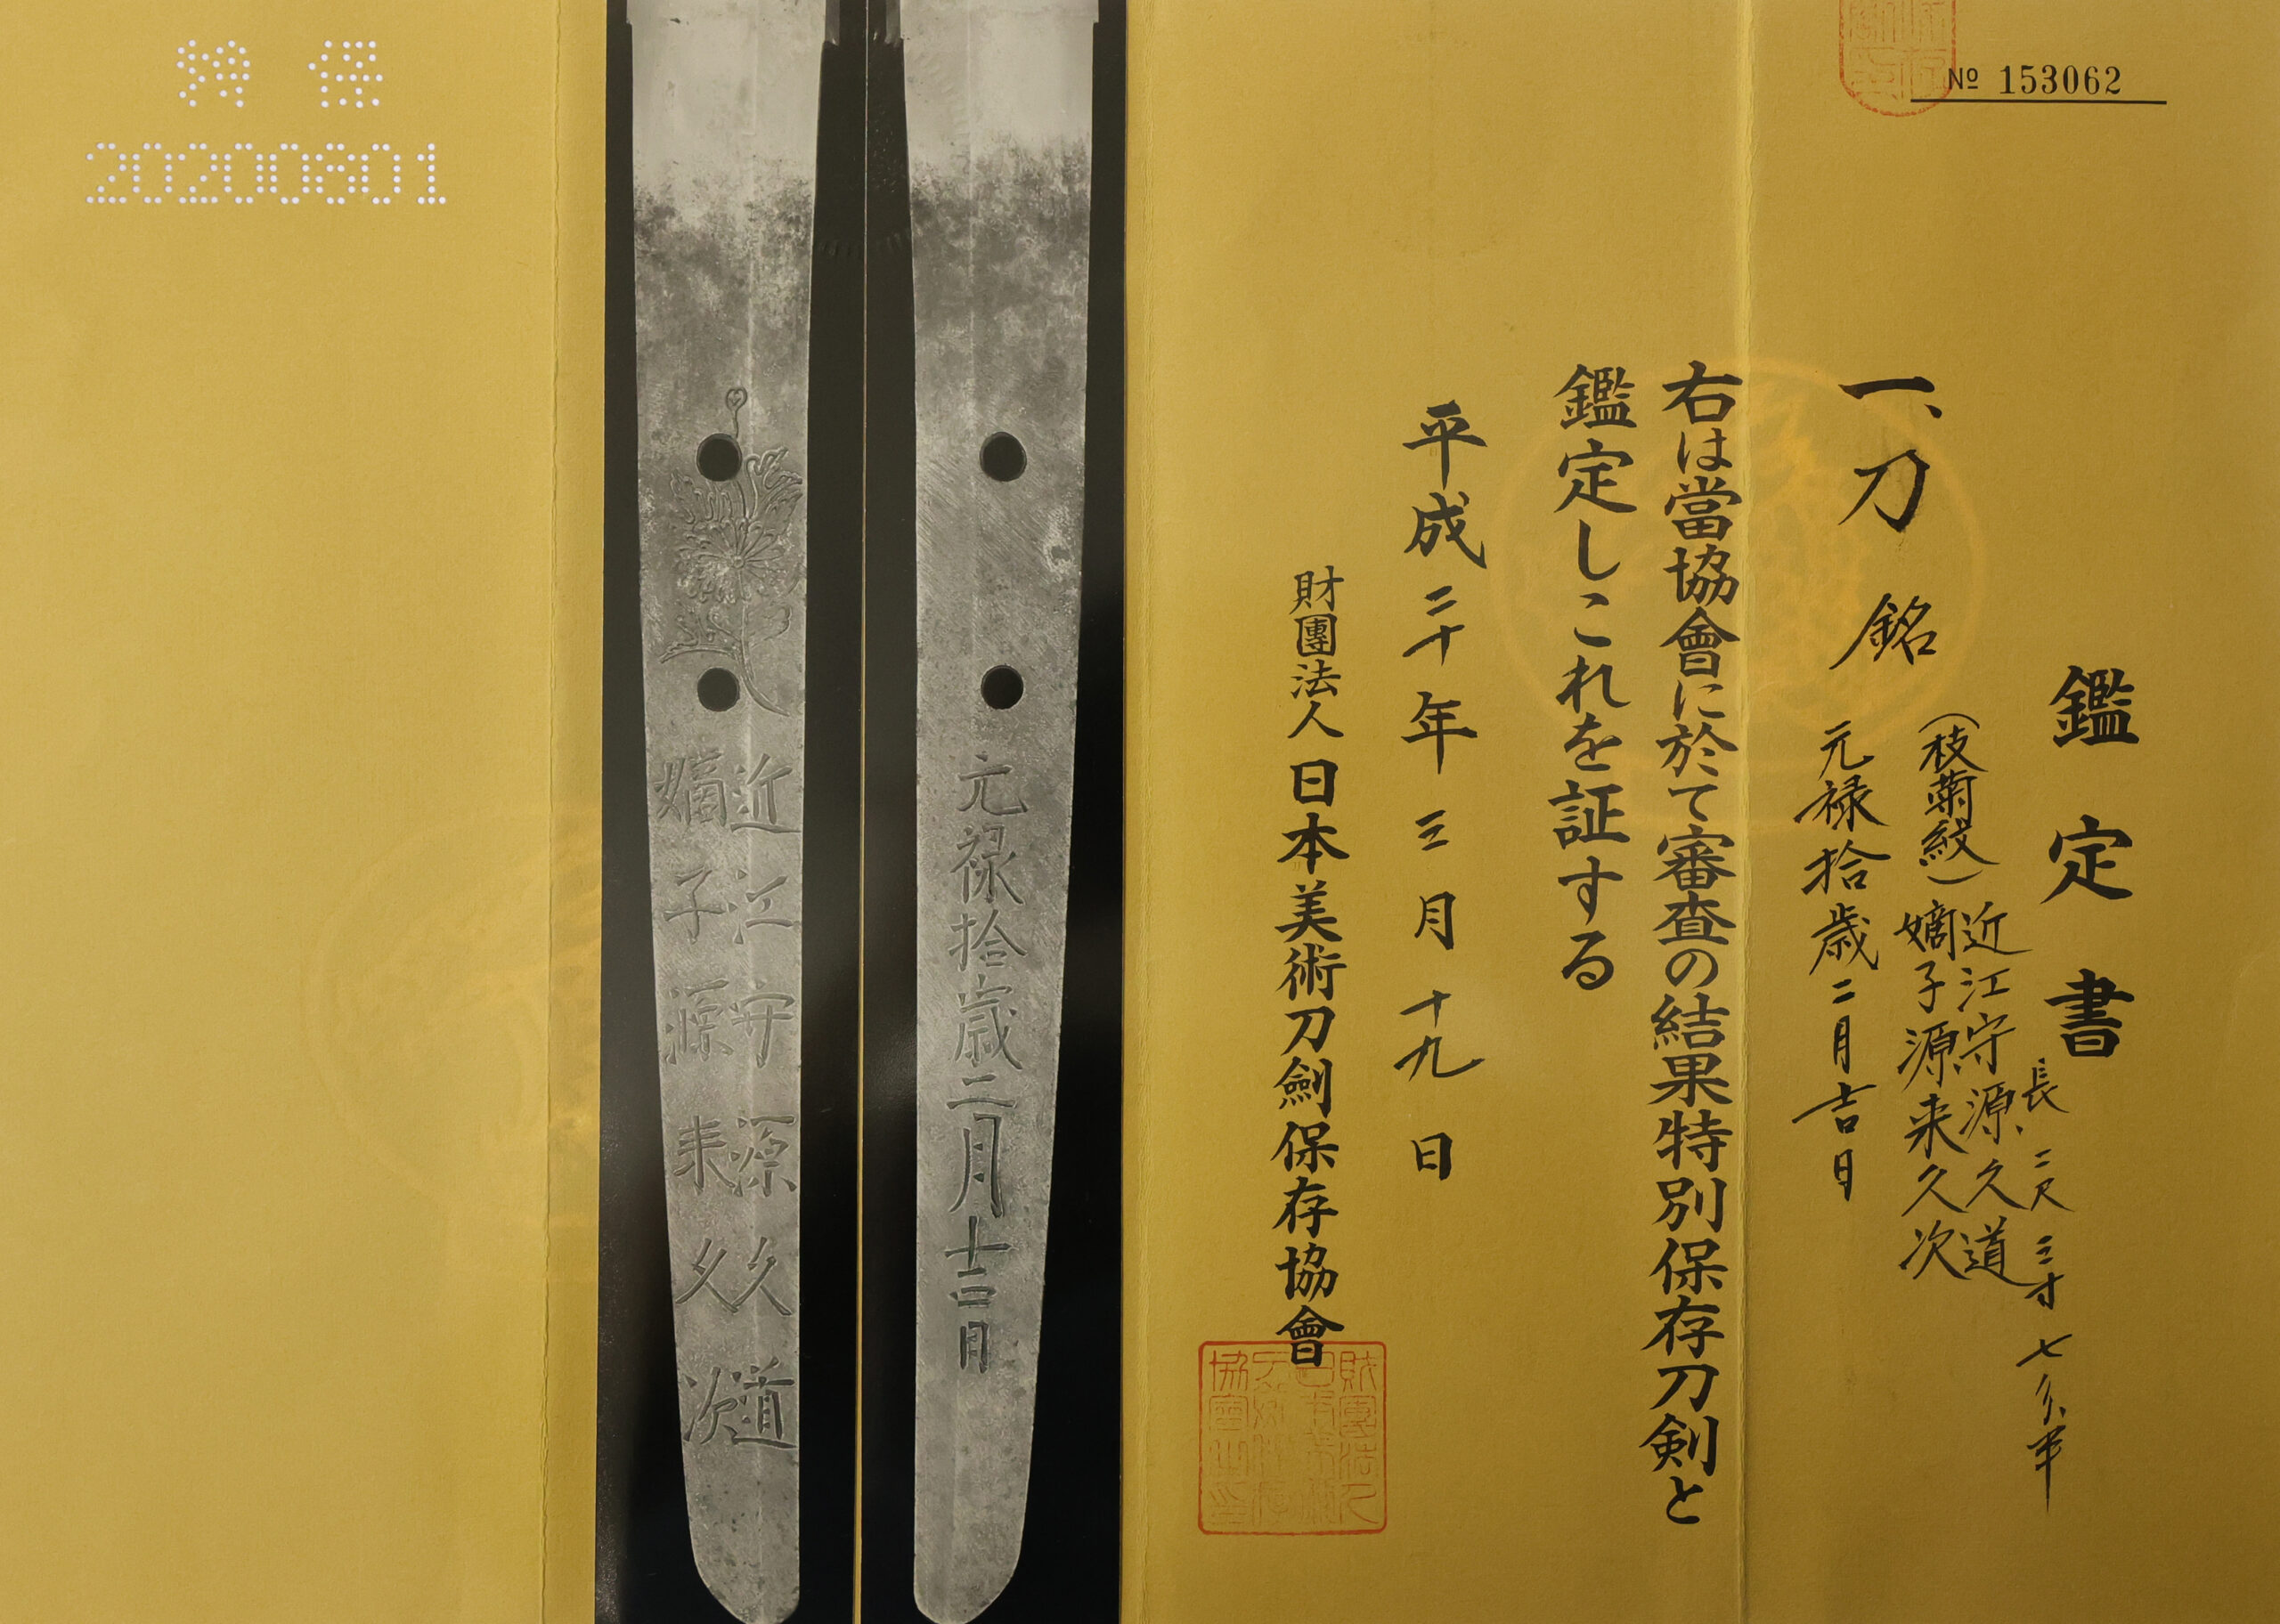 № 153062
鑑定書
長、二尺三寸七分半
一、刀 銘
(枝菊紋)
近江守源久道
嫡子源来久次
元禄拾歳二月吉日
右は當協會に於て審査の結果特別保存刀剣と
鑑定しこれを証する
平成二十年三月十九日
財團法人日本美術刀劍保存協會
元禄拾歳二月吉日
近江守源久道
嫡子源来久次
保
20200801